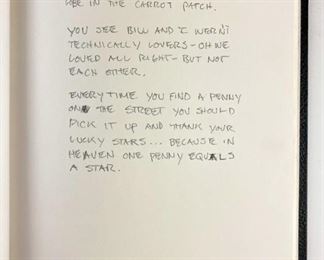 BE IN THE CARROT PATCH.
YOU SEE BILL AND I WERN'T
TECHNICALLY LOVERS - OH WE
LOVED ALL RIGHT - BUT NOT
EACH OTHER.
EVERY TIME YOU FIND A PENNY
ON THE STREET YOU SHOULD
PICK IT UP AND THANK YOUR
LUCKY STARS... BECAUSE IN
HEAVEN ONE PENNY EQUALS
A STAR.